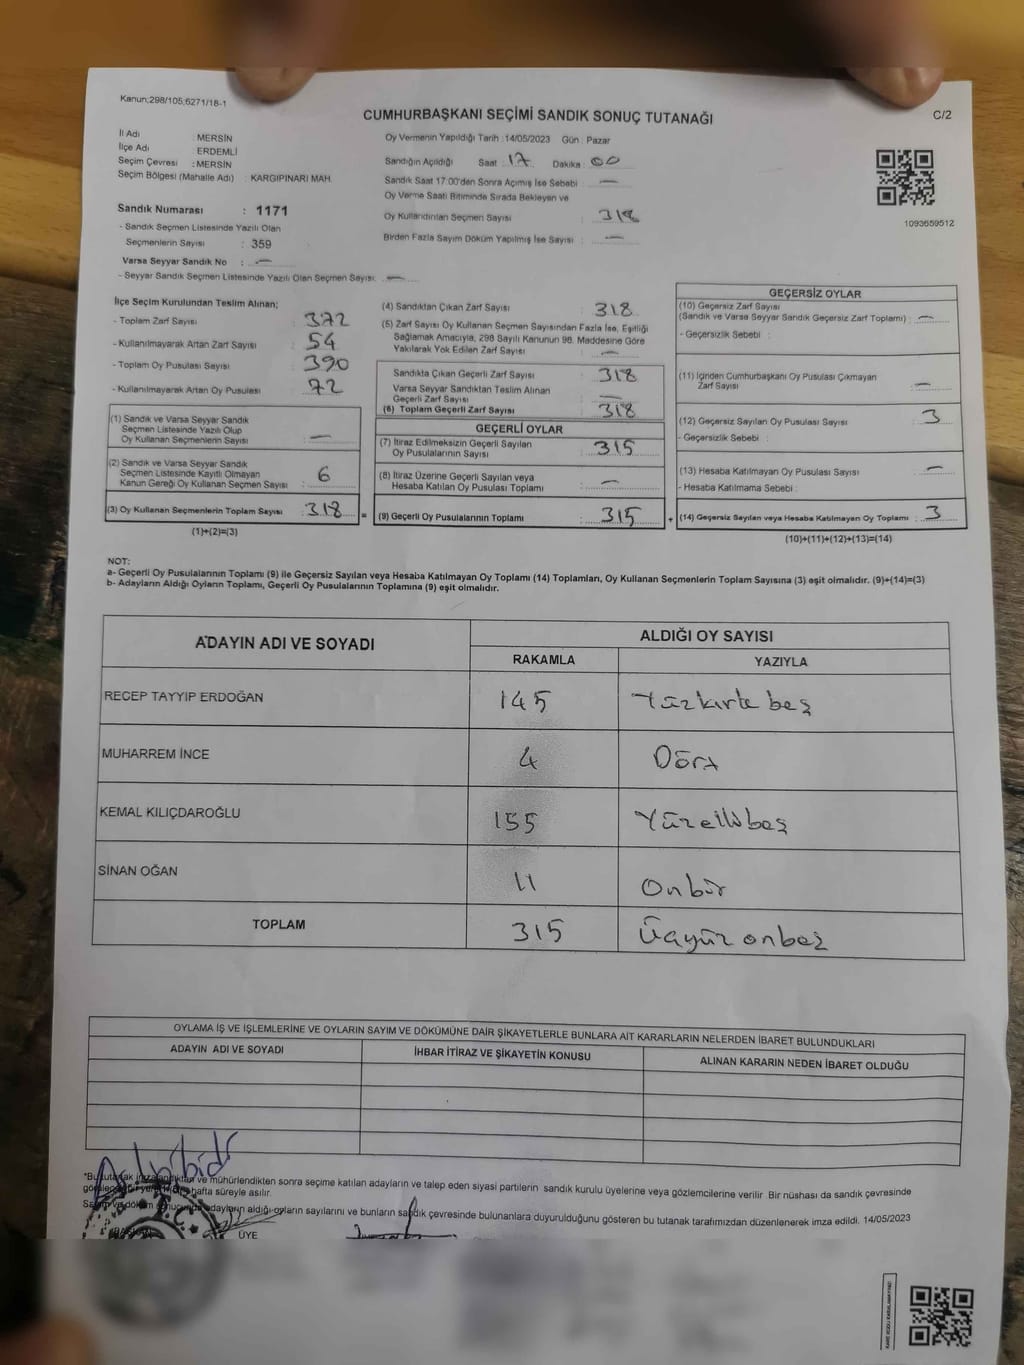 Kanun;298/105;6271/18-1
C/2
CUMHURBAŞKANI SEÇİMİ SANDIK SONUÇ TUTANAĞI
İl Adı : MERSİN
İlçe Adı : ERDEMLİ
Seçim Çevresi : MERSİN
Seçim Bölgesi (Mahalle Adı) : KARGIPINARI MAH.
Sandık Numarası : 1171
- Sandık Seçmen Listesinde Yazılı Olan
Seçmenlerin Sayısı : 359
Varsa Seyyar Sandık No : —
- Seyyar Sandık Seçmen Listesinde Yazılı Olan Seçmen Sayısı: —
Oy Vermenin Yapıldığı Tarih :14/05/2023 Gün : Pazar
Sandığın Açıldığı Saat : 17 Dakika : 00
Sandık Saat 17:00'den Sonra Açımış İse Sebebi : —
Oy Verme Saati Bitiminde Sırada Bekleyen ve
Oy Kullandırılan Seçmen Sayısı : 318
Birden Fazla Sayım Döküm Yapılmış İse Sayısı : —
1093659512
İlçe Seçim Kurulundan Teslim Alınan;
- Toplam Zarf Sayısı : 372
- Kullanılmayarak Artan Zarf Sayısı : 54
- Toplam Oy Pusulası Sayısı : 390
- Kullanılmayarak Artan Oy Pusulası : 72
(1) Sandık ve Varsa Seyyar Sandık
Seçmen Listesinde Yazılı Olup
Oy Kullanan Seçmenlerin Sayısı : —
(2) Sandık ve Varsa Seyyar Sandık
Seçmen Listesinde Kayıtlı Olmayan
Kanun Gereği Oy Kullanan Seçmen Sayısı : 6
(3) Oy Kullanan Seçmenlerin Toplam Sayısı : 318 =
(1)+(2)=(3)
(4) Sandıktan Çıkan Zarf Sayısı : 318
(5) Zarf Sayısı Oy Kullanan Seçmen Sayısından Fazla İse, Eşitliği
Sağlamak Amacıyla, 298 Sayılı Kanunun 98. Maddesine Göre
Yakılarak Yok Edilen Zarf Sayısı : —
Sandıkta Çıkan Geçerli Zarf Sayısı : 318
Varsa Seyyar Sandıktan Teslim Alınan
Geçerli Zarf Sayısı : —
(6) Toplam Geçerli Zarf Sayısı : 318
GEÇERLİ OYLAR
(7) İtiraz Edilmeksizin Geçerli Sayılan
Oy Pusulalarının Sayısı : 315
(8) İtiraz Üzerine Geçerli Sayılan veya
Hesaba Katılan Oy Pusulası Toplamı : —
(9) Geçerli Oy Pusulalarının Toplamı : 315 +
GEÇERSİZ OYLAR
(10) Geçersiz Zarf Sayısı
(Sandık ve Varsa Seyyar Sandık Geçersiz Zarf Toplamı) : —
- Geçersizlik Sebebi :
(11) İçinden Cumhurbaşkanı Oy Pusulası Çıkmayan
Zarf Sayısı : —
(12) Geçersiz Sayılan Oy Pusulası Sayısı : 3
- Geçersizlik Sebebi :
(13) Hesaba Katılmayan Oy Pusulası Sayısı : —
- Hesaba Katılmama Sebebi :
(14) Geçersiz Sayılan veya Hesaba Katılmayan Oy Toplamı : 3
(10)+(11)+(12)+(13)=(14)
NOT:
a- Geçerli Oy Pusulalarının Toplamı (9) ile Geçersiz Sayılan veya Hesaba Katılmayan Oy Toplamı (14) Toplamları, Oy Kullanan Seçmenlerin Toplam Sayısına (3) eşit olmalıdır. (9)+(14)=(3)
b- Adayların Aldığı Oyların Toplamı, Geçerli Oy Pusulalarının Toplamına (9) eşit olmalıdır.
ADAYIN ADI VE SOYADI
ALDIĞI OY SAYISI
RAKAMLA YAZIYLA
RECEP TAYYIP ERDOĞAN 145 Yüzkırk beş
MUHARREM İNCE 4 Dört
KEMAL KILIÇDAROĞLU 155 Yüzellibeş
SİNAN OĞAN 11 Onbir
TOPLAM 315 Üçyüz onbeş
OYLAMA İŞ VE İŞLEMLERİNE VE OYLARIN SAYIM VE DÖKÜMÜNE DAİR ŞİKAYETLERLE BUNLARA AİT KARARLARIN NELERDEN İBARET BULUNDUKLARI
ADAYIN ADI VE SOYADI İHBAR İTİRAZ VE ŞİKAYETİN KONUSU ALINAN KARARIN NEDEN İBARET OLDUĞU
Aslı gibidir
ve mühürlendikten sonra seçime katılan adayların ve talep eden siyasi partilerin sandık kurulu üyelerine veya gözlemcilerine verilir. Bir nüshası da sandık çevresinde
hafta süreyle asılır.
adayların aldığı oyların sayılarını ve bunların sandık çevresinde bulunanlara duyurulduğunu gösteren bu tutanak tarafımızdan düzenlenerek imza edildi. 14/05/2023
ÜYE